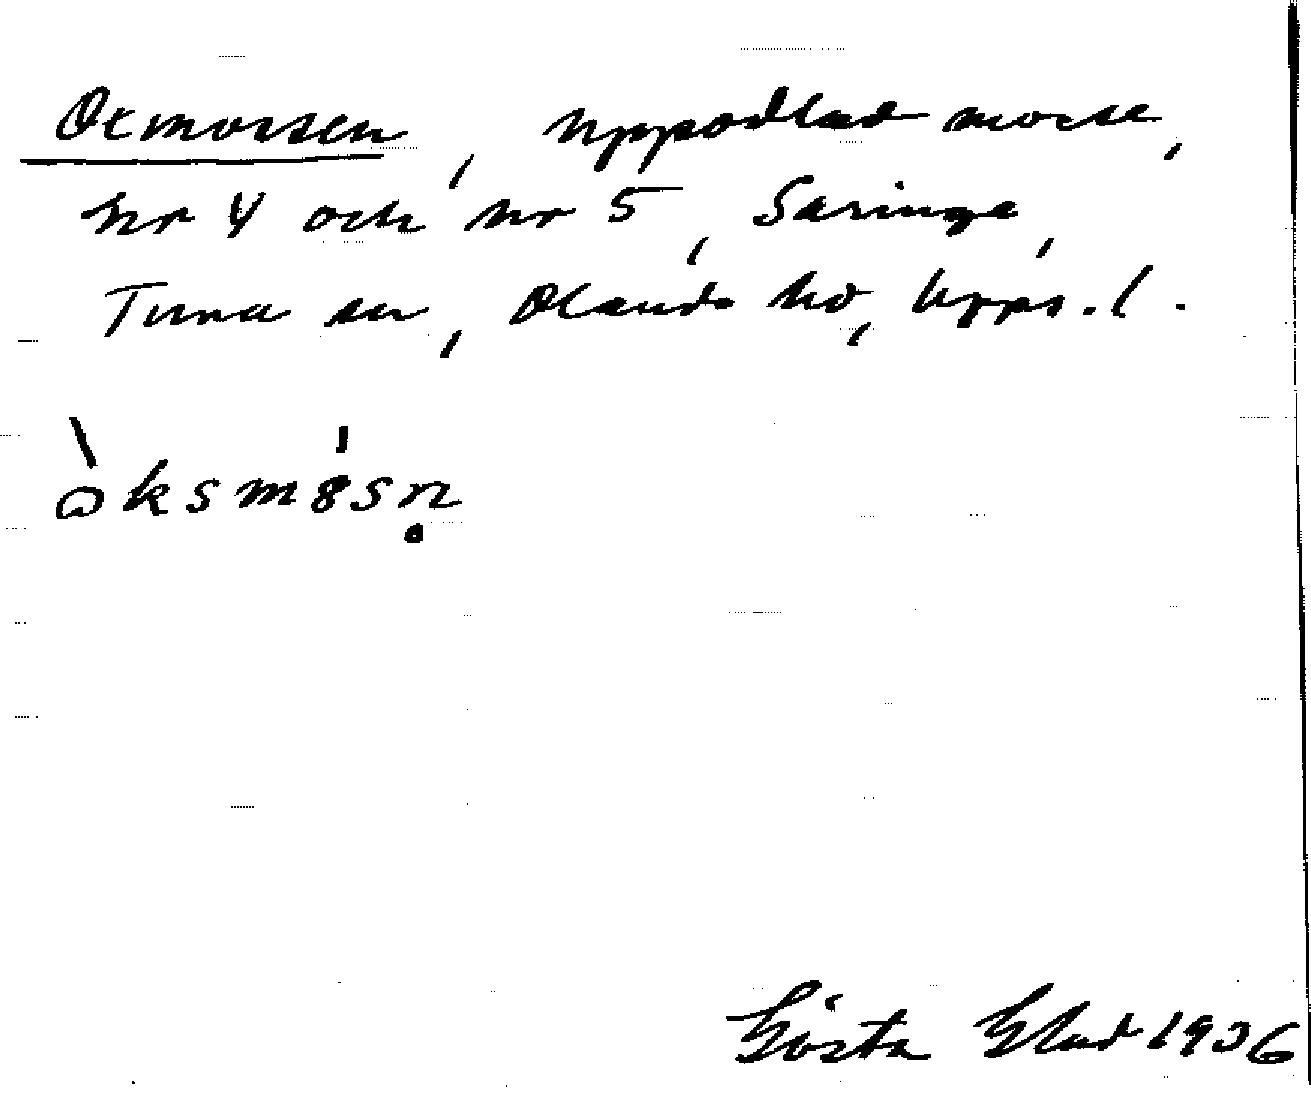 Oxmossen, uppodlad mosse,
Nr 4 och Nr 5, Saringe,
Tuna sn, Olands hd, Upps. l.
òksmu̇sn̥
Gösta Glad 1936